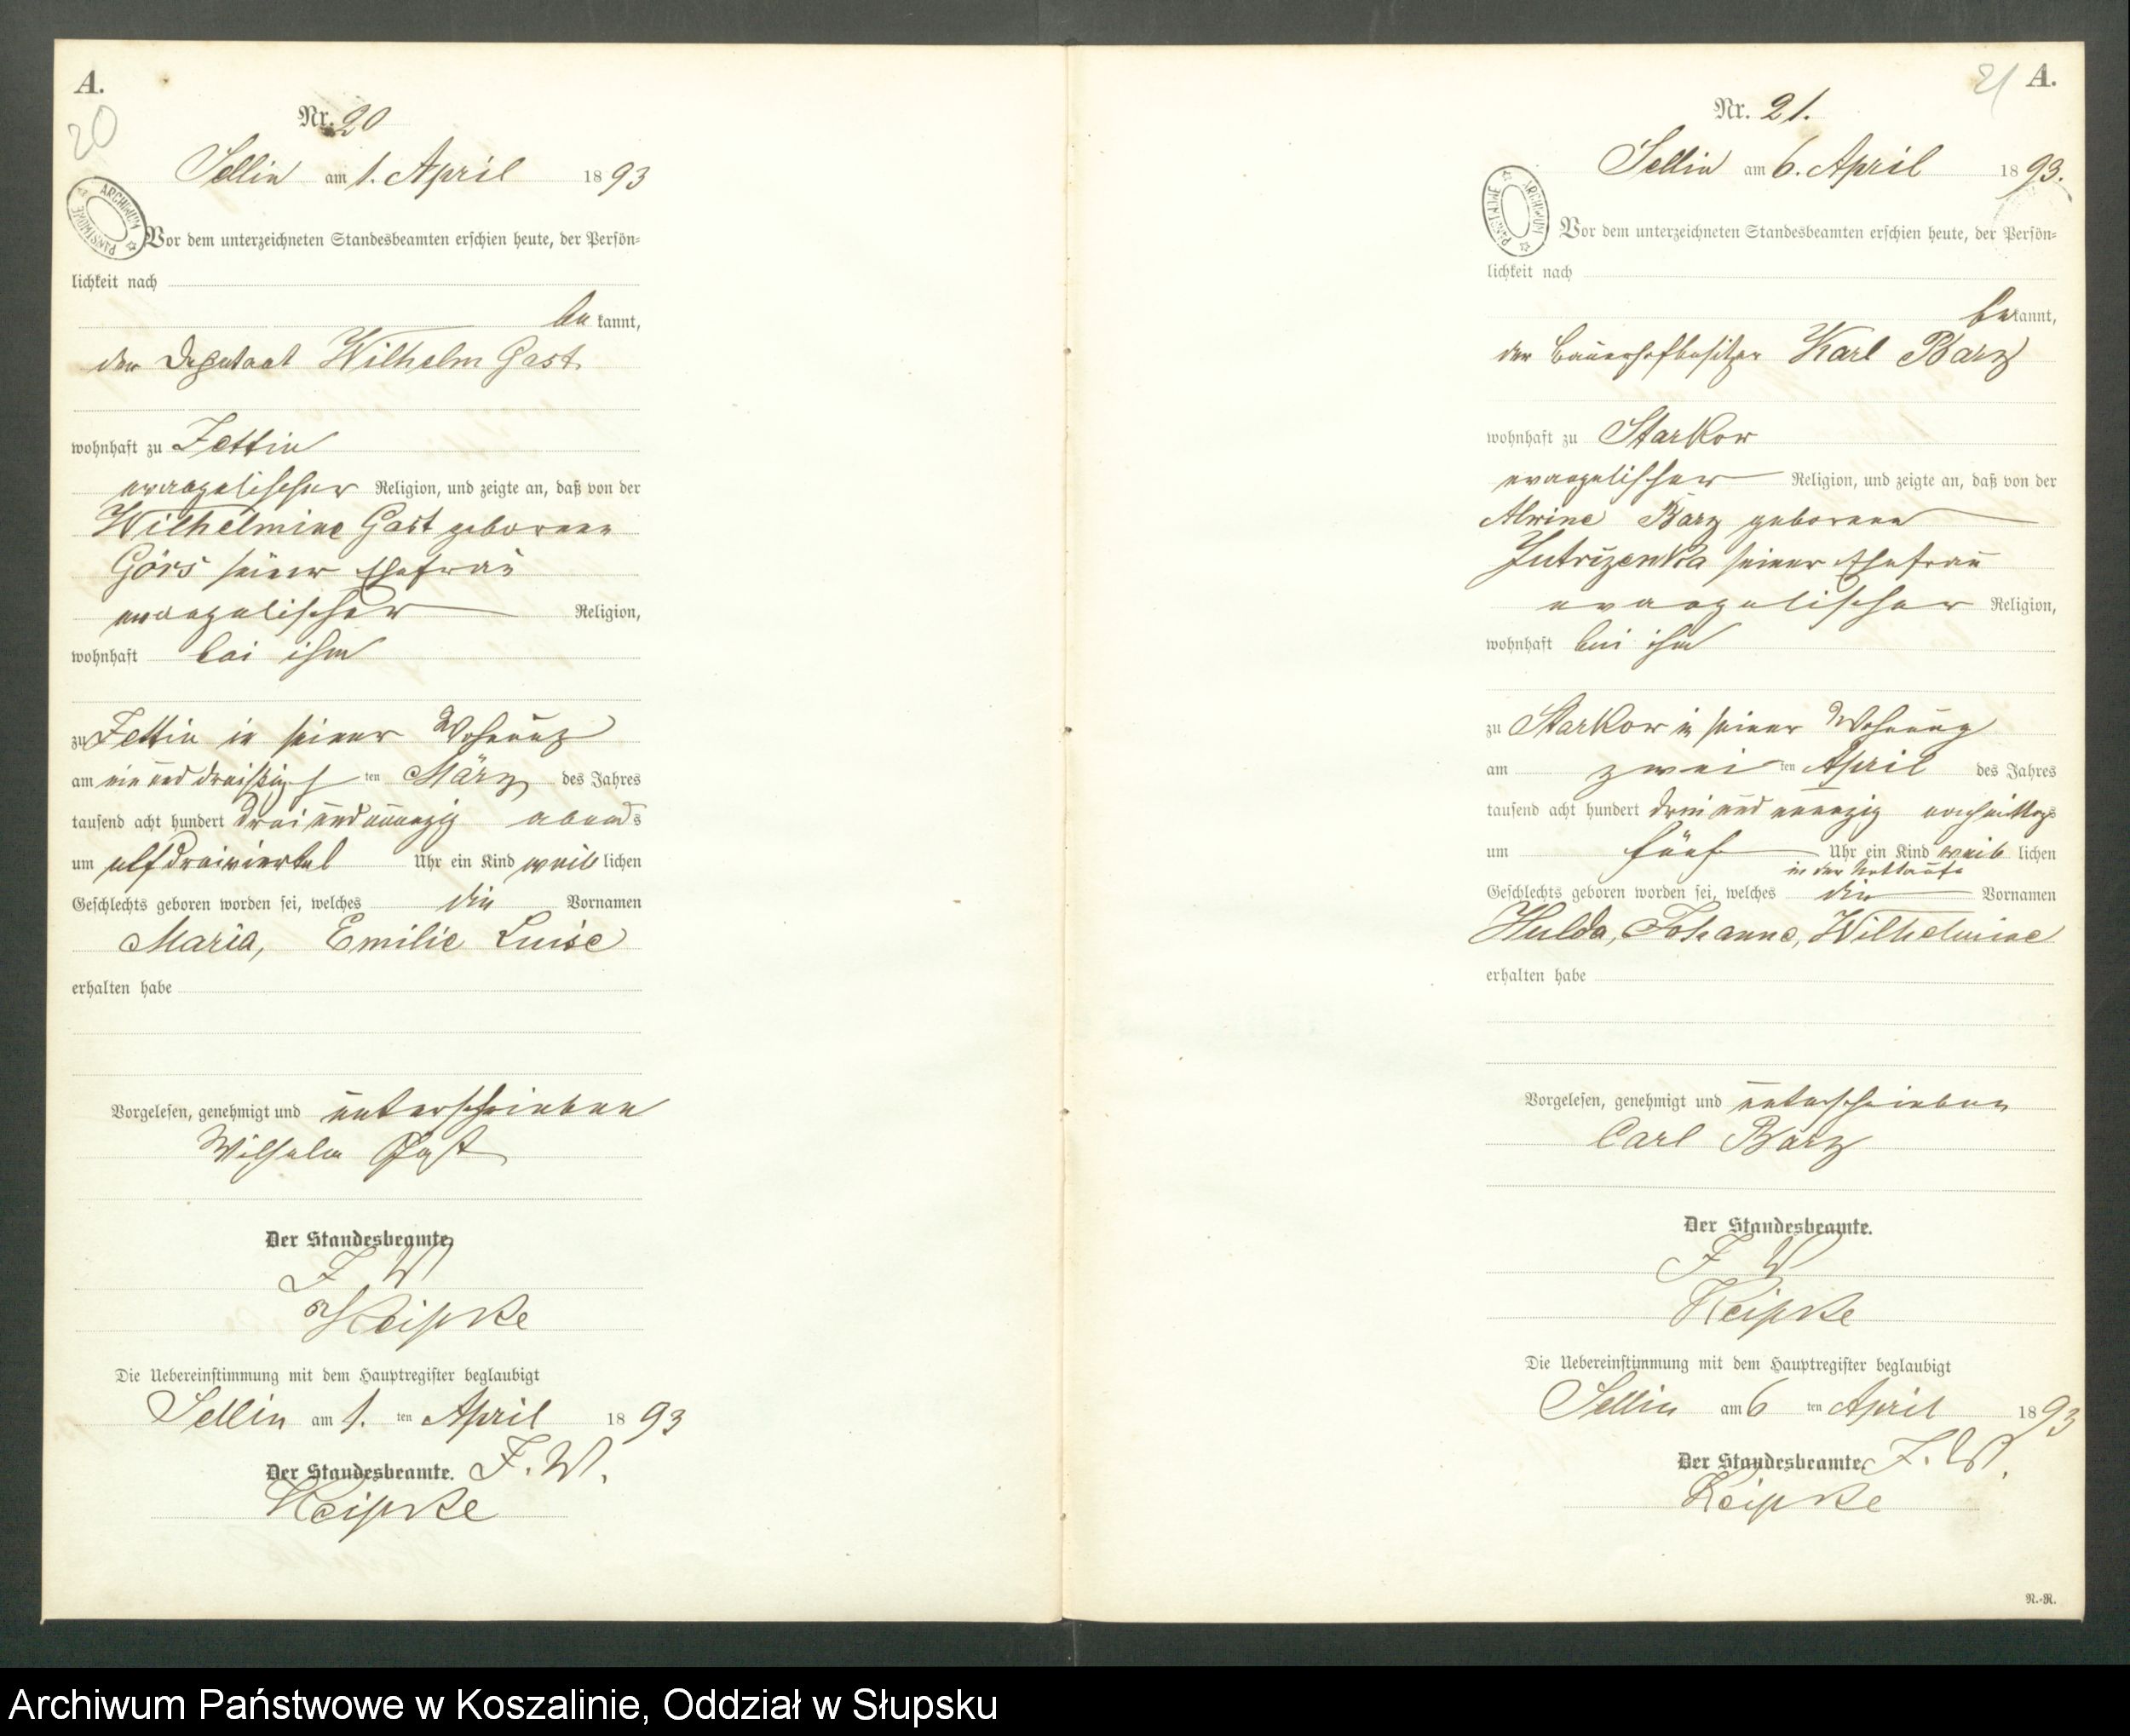 A.
20
Nr. 20
Sellin am 1. April 1893
ARCHIWUM PAŃSTWOWE
Vor dem unterzeichneten Standesbeamten erschien heute, der Persön=
lichkeit nach
be kannt,
der Deputant Wilhelm Gast
wohnhaft zu Zettin
evangelischer Religion, und zeigte an, daß von der
Wilhelmine Gast geborenen
Görs seiner Ehefrau
evangelischer Religion,
wohnhaft bei ihm
zu Zettin in seiner Wohnung
am ein und dreißigsten März des Jahres
tausend acht hundert drei und neunzig abends
um elf dreiviertel Uhr ein Kind weiblichen
Geschlechts geboren worden sei, welches die Vornamen
Maria, Emilie Luise
erhalten habe
Vorgelesen, genehmigt und unterschrieben
Wilhelm Gast
Der Standesbeamte.
F W
Keipke
Die Uebereinstimmung mit dem Hauptregister beglaubigt
Sellin am 1. ten April 1893
Der Standesbeamte. F. W.
Keipke
21 A.
Nr. 21.
Sellin am 6. April 1893.
ARCHIWUM PAŃSTWOWE
Vor dem unterzeichneten Standesbeamten erschien heute, der Persön=
lichkeit nach
bekannt,
der Bauerhofbesitzer Karl Barz
wohnhaft zu Starkow
evangelischer Religion, und zeigte an, daß von der
Alwine Barz geborenen
Jutrizenka seiner Ehefrau
evangelischer Religion,
wohnhaft bei ihm
zu Starkow in seiner Wohnung
am zwei ten April des Jahres
tausend acht hundert drei und neunzig nachmittags
um fünf Uhr ein Kind weib lichen
in der Nottaufe
Geschlechts geboren worden sei, welches die Vornamen
Hulda, Johanne, Wilhelmine
erhalten habe
Vorgelesen, genehmigt und unterschrieben
Carl Barz
Der Standesbeamte.
F W
Keipke
Die Uebereinstimmung mit dem Hauptregister beglaubigt
Sellin am 6 ten April 1893
Der Standesbeamte. F. W.
Keipke
N.-R.
Archiwum Państwowe w Koszalinie, Oddział w Słupsku